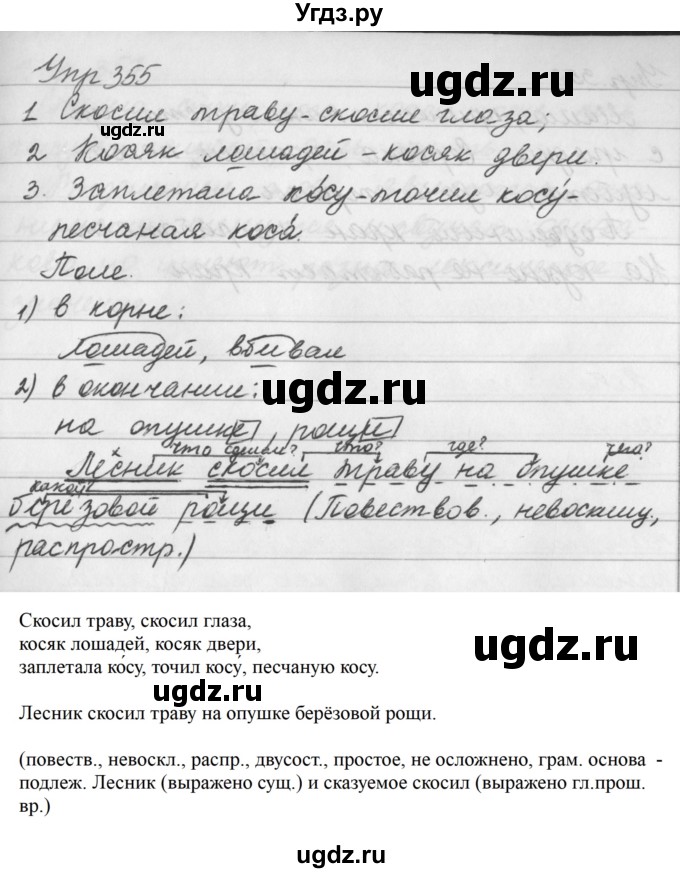 Угдз.ру
Упр 355
1 Скосил траву - скосил глаза;
2 Косяк лошадей - косяк двери.
3. Заплетала ко́су - точил косу́ -
песчаная коса́.
Поле.
1) в корне:
Лошадей, вбивал
2) в окончании:
на опушке, рощи
что сделал? что? где? чего?
Лесник скосил траву на опушке
какой?
берёзовой рощи (Повествов., невосклиц,
распростр.)
Скосил траву, скосил глаза,
косяк лошадей, косяк двери,
заплетала ко́су, точил косу́, песчаную косу.
Лесник скосил траву на опушке берёзовой рощи.
(повеств., невоскл., распр., двусост., простое, не осложнено, грам. основа -
подлеж. Лесник (выражено сущ.) и сказуемое скосил (выражено гл.прош.
вр.)
ugdz.ru
ugdz.ru
ugdz.ru
ugdz.ru
ugdz.ru
ugdz.ru
ugdz.ru
ugdz.ru
ugdz.ru
ugdz.ru
ugdz.ru
ugdz.ru